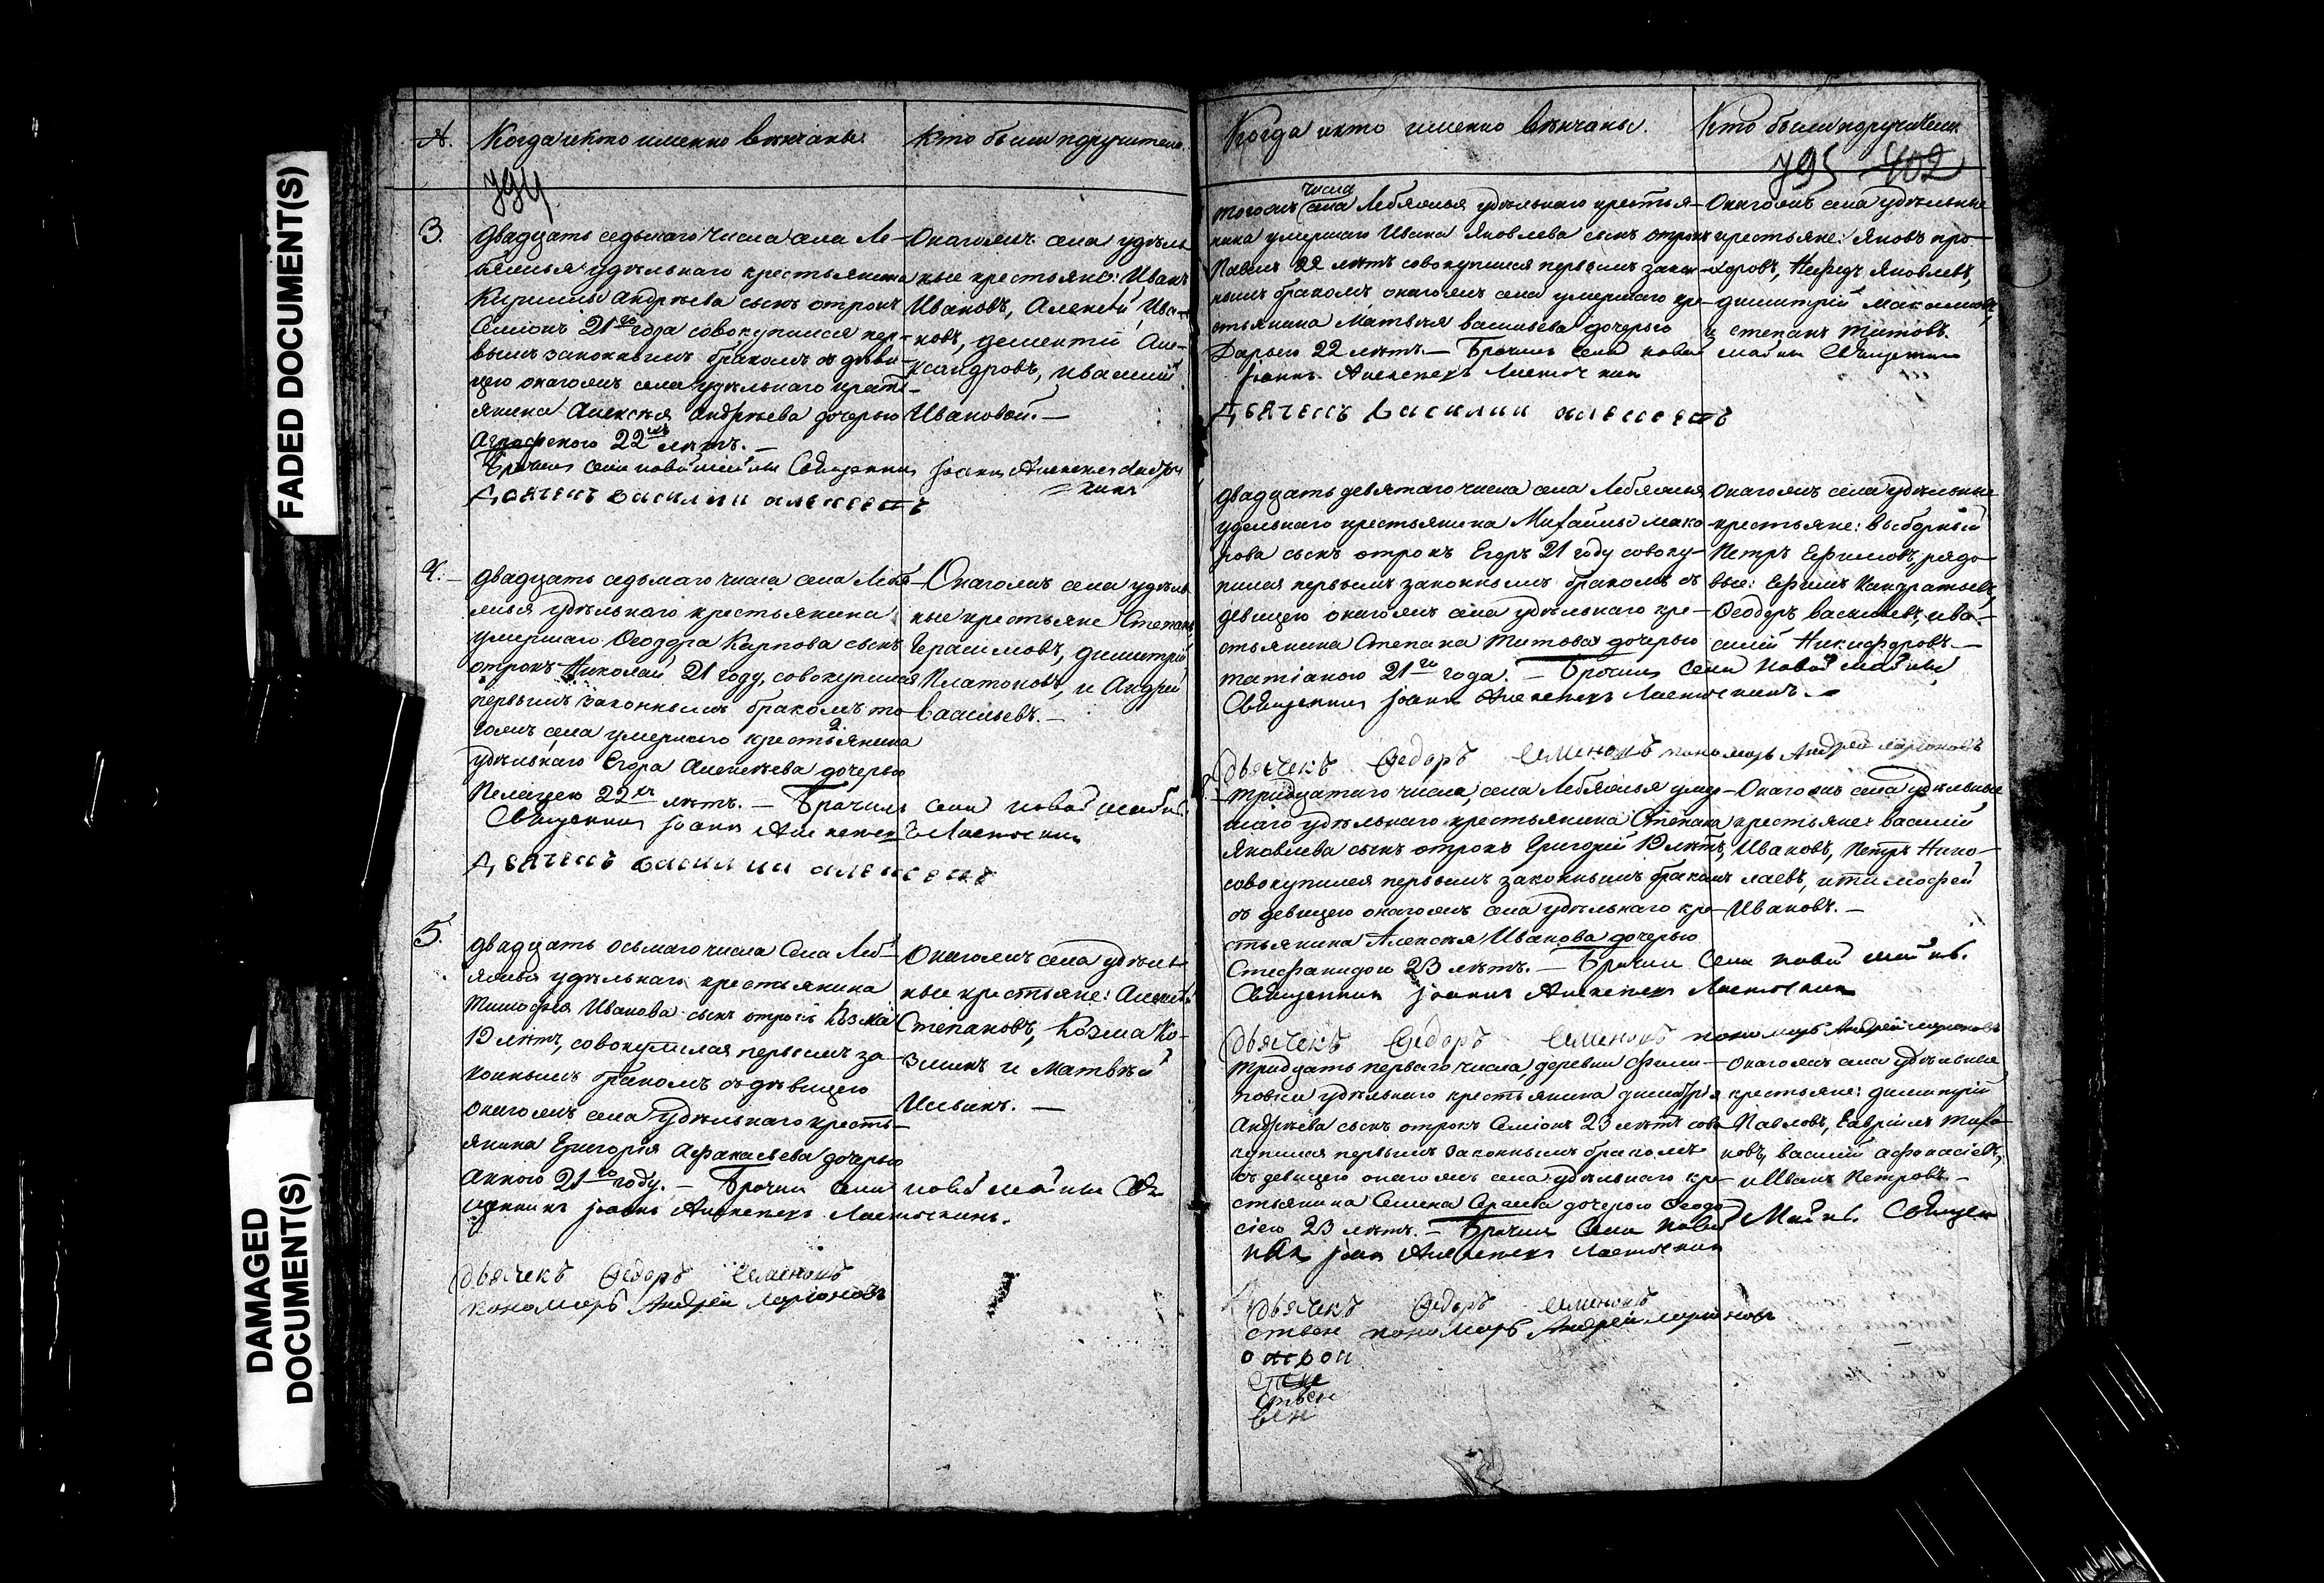 FADED DOCUMENT(S)
DAMAGED
DOCUMENT(S)
№. Когда и кто именно вѣнчаны. Кто были поручители.
794
3. двадцать седьмаго числа села Ле-
бяжья удѣльнаго крестьянина
Кирилы Андрѣева сынъ отрокъ
Семіонъ 21го года совокупился пер-
вымъ законнымъ бракомъ съ дѣви-
цею онагожъ села удѣльнаго крест-
янина Алексѣя Андрѣева дочерью
Аграфеною 22 лѣтъ. —
Онагожъ села удѣль-
ные крестьяне: Иванъ
Ивановъ, Алексѣй Ива-
новъ, дементій Але-
ксандровъ, и василій
Ивановой. —
Брачилъ села новой майны Священникъ Іоаннъ Алексѣевъ
Дьячекъ Василии алексеевъ
4. — двадцать седьмаго числа села Лебя-
жья удѣльнаго крестьянина
умершаго Ѳеодора Карпова сынъ
отрокъ Николай 21 году, совокупился
первымъ законнымъ бракомъ то-
гожъ села умершаго крестьянина
удѣльнаго Егора Алексѣева дочерью
Пелагею 22хъ лѣтъ. — Брачилъ села новой майны
Священникъ Іоаннъ Алексѣевъ Ласточкинъ
Онагожъ села удѣль-
ные крестьяне Степанъ
Герасимовъ, димитрій
Платоновъ, и Андрей
васильевъ. —
Дьячекъ василии алексеевъ
5. двадцать осьмаго числа Села Леб-
яжья удѣльнаго крестьянина
Тимофея Иванова сынъ отрокъ Козма
19 лѣтъ, совокупился первымъ за-
коннымъ бракомъ съ дѣвицею
онагожъ села удѣльнаго кресть-
янина Григорія Афанасьева дочерью
Анною 21го году. — Брачилъ села новой майны Свя-
щенникъ Іоаннъ Алексѣевъ Ласточкинъ.
Онагожъ села удѣль-
ные крестьяне: Алексѣй
Степановъ, Козма Ко-
зминъ и Матвѣй
Ильинъ. —
дьячекъ Ѳедоръ Семеновъ
пономарь Андрей Ларіоновъ
Когда и кто именно вѣнчаны. Кто были поручители.
795 402
числа
тогожъ села Лебяжья удѣльнаго крестья-
нина умершаго Ивана Яковлева сынъ отрокъ
Павелъ 22 лѣтъ совокупился первымъ закон-
нымъ бракомъ онагожъ села умершаго кре-
стьянина Матвѣя васильева дочерью
Дарьею 22 лѣтъ. — Брачилъ села новой майны Священникъ
Іоаннъ Алексѣевъ Ласточкин
Онагожъ села удѣльные
крестьяне: Яковъ про-
хоровъ, Нефедъ Яковлевъ,
димитрій Максимовъ,
и степанъ Титовъ.
Дьячекъ Василии алексеевъ
двадцать девятаго числа села Лебяжья
удельнаго крестьянина Михайлы мака-
рова сынъ отрокъ Егоръ 21 году совоку-
пился первымъ законнымъ бракомъ съ
девицею онагожъ села удѣльнаго кре-
стьянина Степана Титова дочерью
татіаною 21го года. — Брачилъ села новой майны
Священникъ Іоаннъ Алексѣевъ Ласточкинъ. —
Онагожъ села удѣльные
крестьяне: выборный
Петръ Ефимовъ, рядо-
вые: Ефимъ Кандратьевъ,
Ѳеодоръ васильевъ, и ва-
силій Никифоровъ. —
Дьячекъ Ѳедоръ Семеновъ пономарь Андрей ларіоновъ
тридцатаго числа, села Лебяжья умер-
шаго удѣльнаго крестьянина Степана
Яковлева сынъ отрокъ Григорій 19 лѣтъ,
совокупился первымъ законнымъ бракомъ
съ девицею онагожъ села удѣльнаго кре-
стьянина Алексѣя Иванова дочерью
Стефанидою 23 лѣтъ. — Брачилъ Села новой майны.
Священникъ Іоаннъ Алексѣевъ Ласточкин
Онагожъ села удѣльные
крестьяне: василій
Ивановъ, Петръ Нико-
лаевъ, и тимофей
Ивановъ. —
Дьячекъ Ѳедоръ Семеновъ пономарь Андрей ларіоновъ
тридцать перваго числа, деревни Фили-
повки удѣльнаго крестьянина димитрія
Андрѣева сынъ отрокъ Семіонъ 23 лѣтъ сово-
купился первымъ законнымъ бракомъ
съ девицею онагожъ села удѣльнаго кре-
стьянина Семена Сергѣева дочерью Ѳеодо-
сіею 23 лѣтъ. — Брачилъ Села новой Майны. Священ-
никъ Іоанн Алексѣевъ Ласточкин
Онагожъ села удѣльные
крестьяне: димитрій
Павловъ, Гавріилъ Тихо-
новъ, василій афонасіевъ,
и Иванъ Петровъ. —
Дьячекъ Ѳедоръ Семеновъ
ствен пономарь Андрей ларіоновъ
ствен
вен